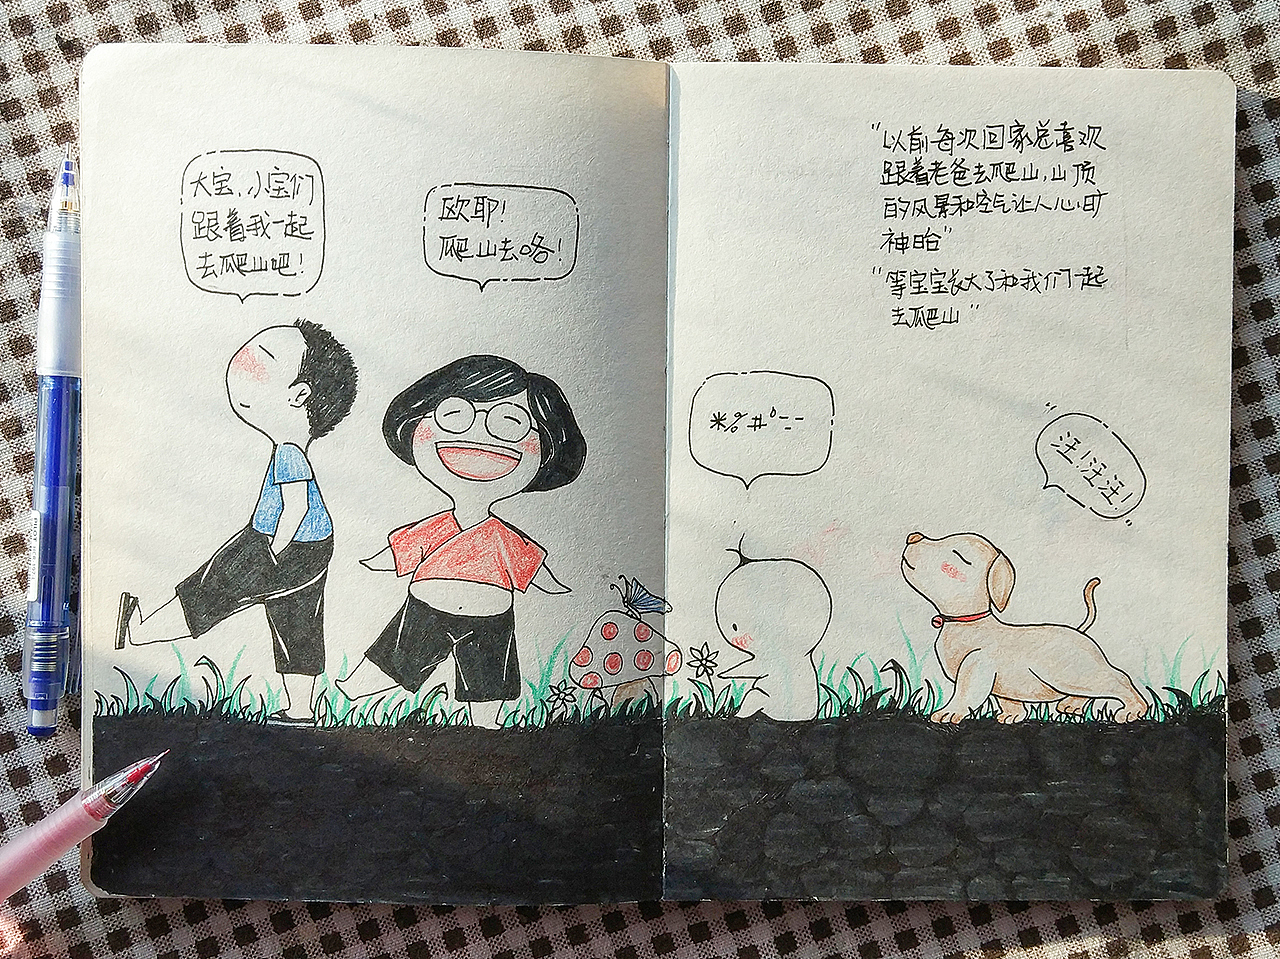 大宝，小宝们
跟着我一起
去爬山吧！
欧耶！
爬山去咯！
“以前每次回家总喜欢
跟着老爸去爬山，山顶
的风景和空气让人心旷
神怡”
“等宝宝长大了和我们一起
去爬山”
*%#°---
“汪！汪汪！”